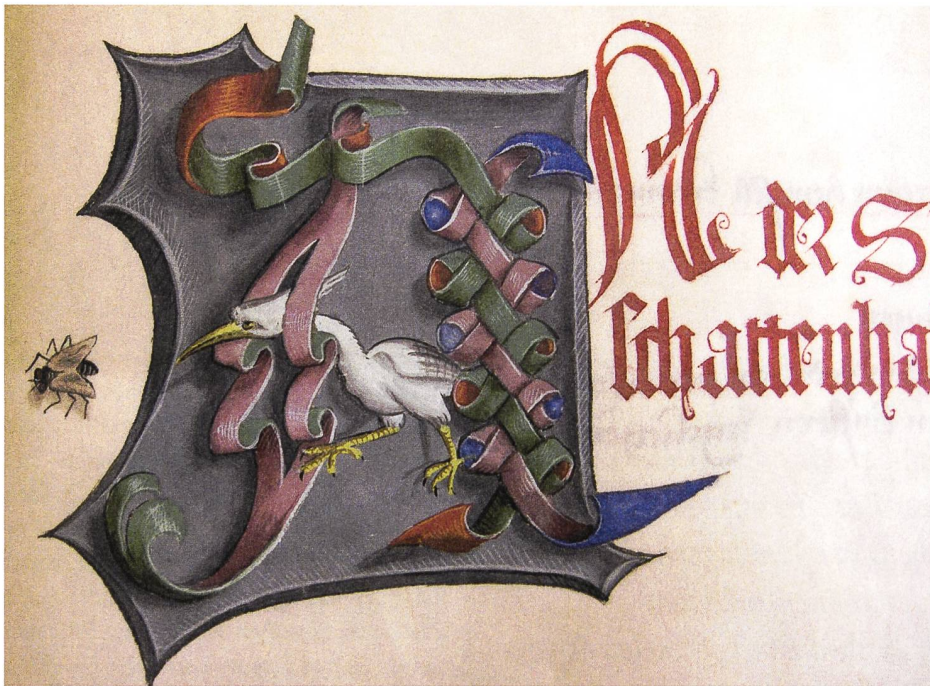 AN der S
ſchattenha